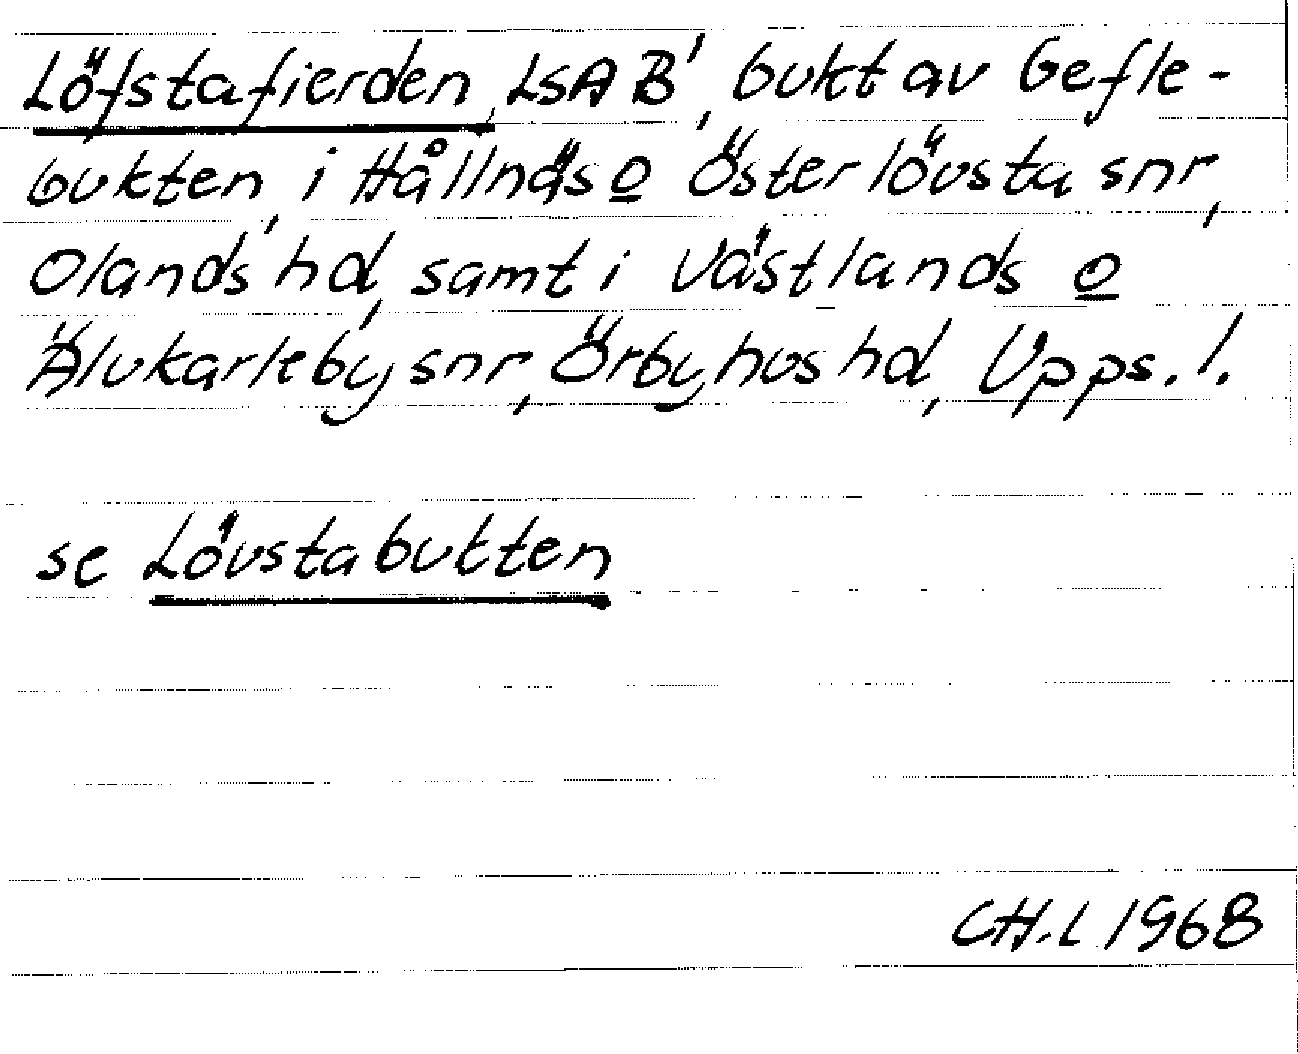 Löfstafierden, LSA B', bukt av Gefle-
bukten, i Hållnäs o Österlövsta snr,
Olands hd, samt i Västlands o
Älvkarleby snr, Örbyhus hd, Upps. l.
se Lövstabukten
CH.L 1968